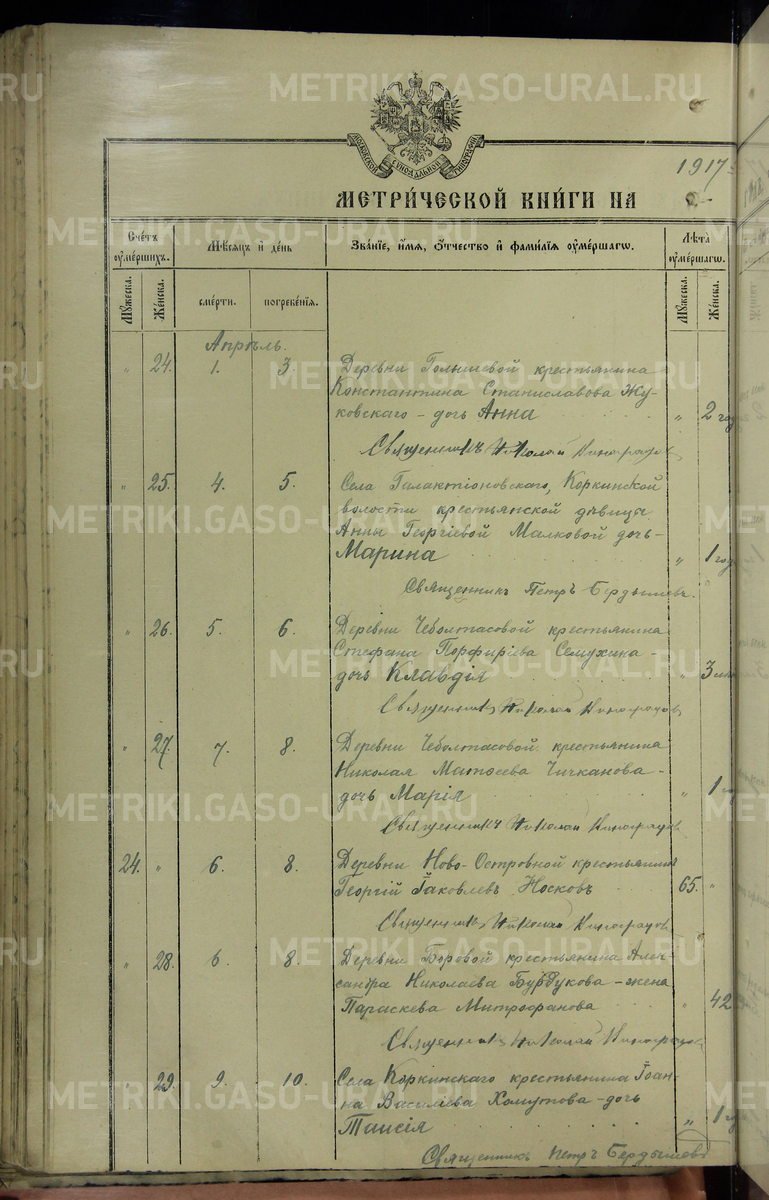 METRIKI.GASO-URAL.RU
МОСКОВСКОЙ СѴНОДАЛЬНОЙ ТИПОГРАФІИ
1917
МЕТРИ́ЧЕСКОЙ КНИ́ГИ НА
Сче́тъ ᲂу҆ме́ршихъ. Мѣ́сяцъ и҆ де́нь Зва́нїе, и҆́мѧ, ѻ҆́тчество и҆ фами́лїѧ ᲂу҆ме́ршагѡ. Лѣ́та ᲂу҆ме́ршагѡ.
Мꙋ́жеска. Же́нска. сме́рти. погребе́нїѧ. Мꙋ́жеска. Же́нска.
Апрѣль.
„ 24. 1. 3. Деревни Гольшевой крестьянина
Константина Станиславова Жу-
ковскаго - дочь Анна „ 2 год
Священникъ Николай Виноградовъ
„ 25. 4. 5. Села Галактіоновскаго, Коркинской
волости крестьянской дѣвицы
Анны Георгіевой Малковой дочь-
Марина „ 1 год
Священникъ Петръ Бердышевъ.
„ 26. 5. 6. Деревни Чеболтасовой крестьянина
Стефана Порфиріева Семухина -
дочь Клавдія „ 3
Священникъ Николай Виноградовъ
„ 27. 7. 8. Деревни Чеболтасовой крестьянина
Николая Матѳеева Чичканова -
дочь Марія „ 1
Священникъ Николай Виноградовъ
24. „ 6. 8. Деревни Ново-Островной крестьянинъ
Георгій Іаковлевъ Носковъ 65. „
Священникъ Николай Виноградовъ
„ 28. 6. 8. Деревни Боровой крестьянина Алек-
сандра Николаева Бурдукова - жена
Параскева Митрофанова „ 42
Священникъ Николай Виноградовъ
29. 9. 10. Села Коркинскаго крестьянина Іоан-
на Василіева Хомутова - дочь
Таисія „ 1
Священникъ Петръ Бердышевъ